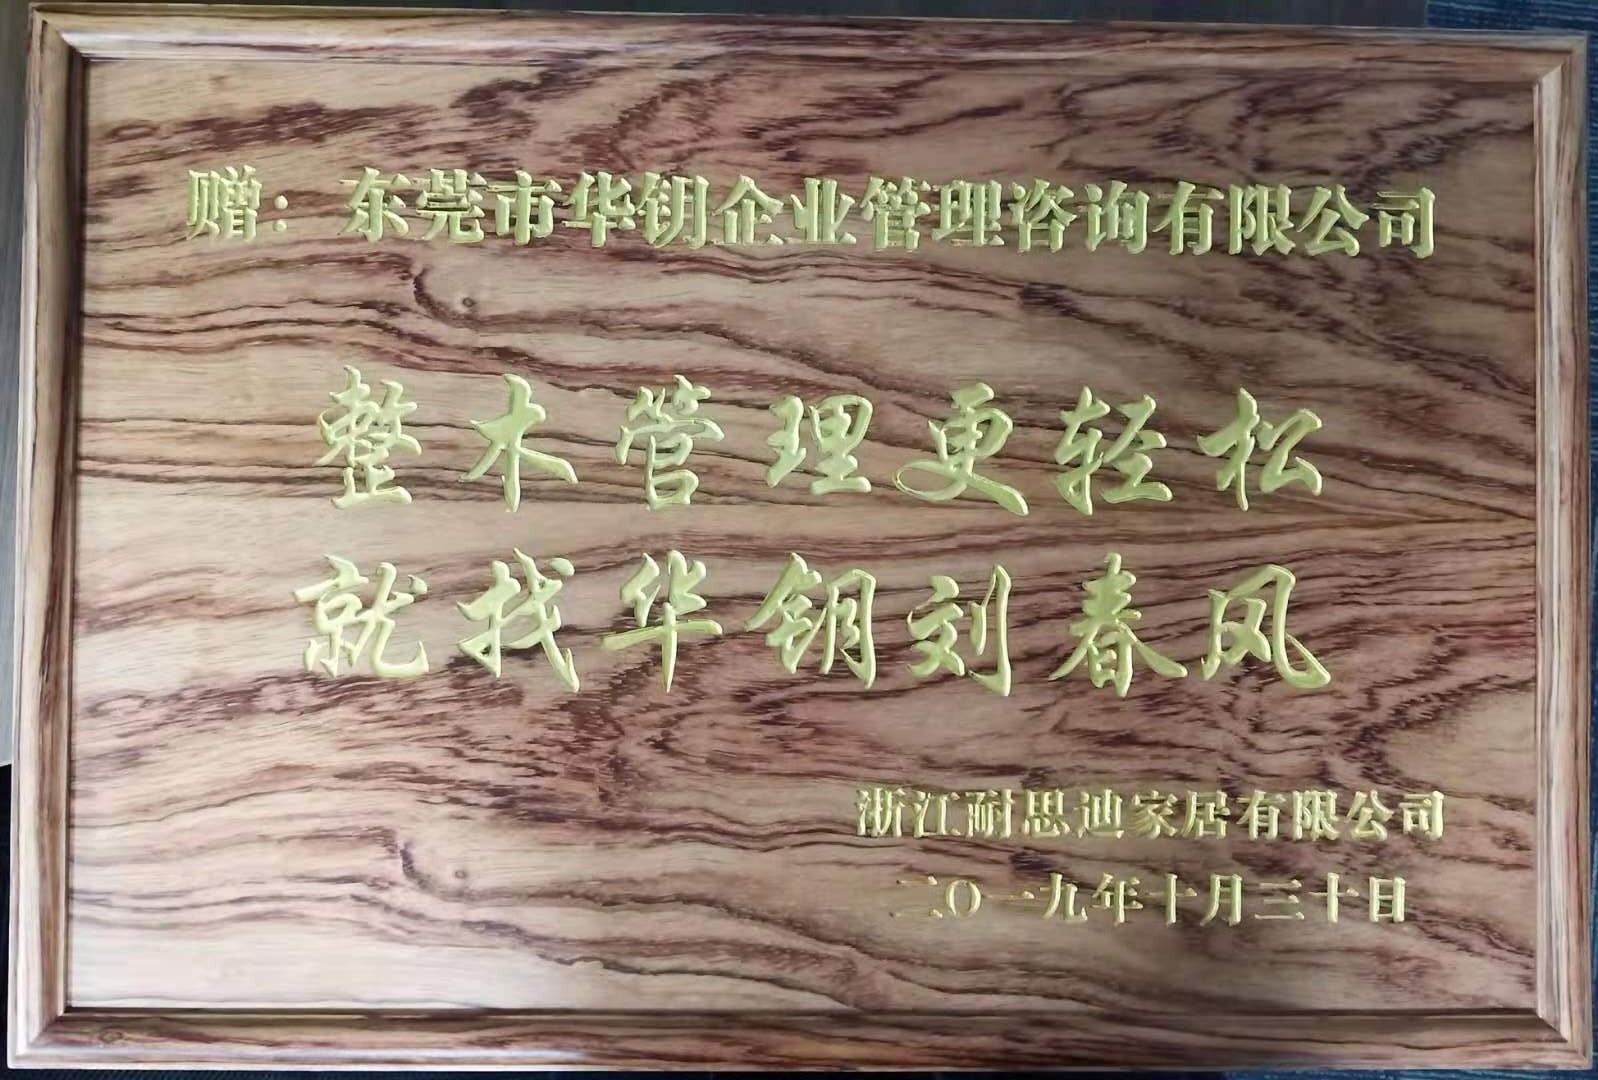 赠：东莞市华钥企业管理咨询有限公司
整木管理更轻松
就找华钥刘春风
浙江耐思迪家居有限公司
二〇一九年十月三十日